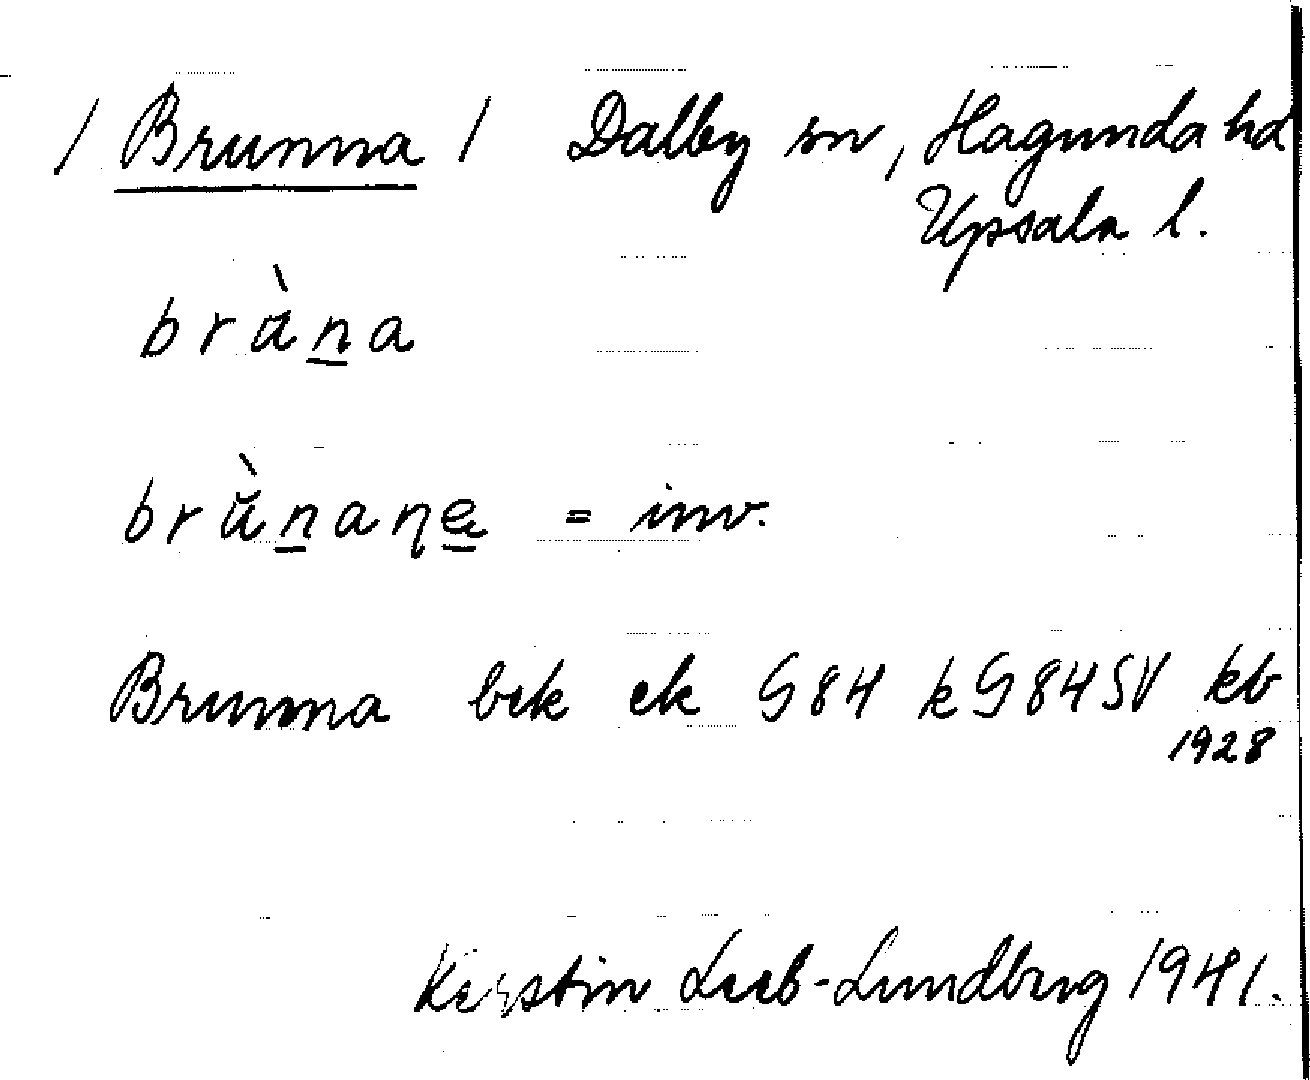 / Brunna / Dalby sn, Hagunda hd
Upsala l.
brùn̲a
brŭ̀n̲aηe̲ = inv.
Brunna bek ek G84 kG84SV kb
1928
Kerstin Leeb-Lundberg 1941.